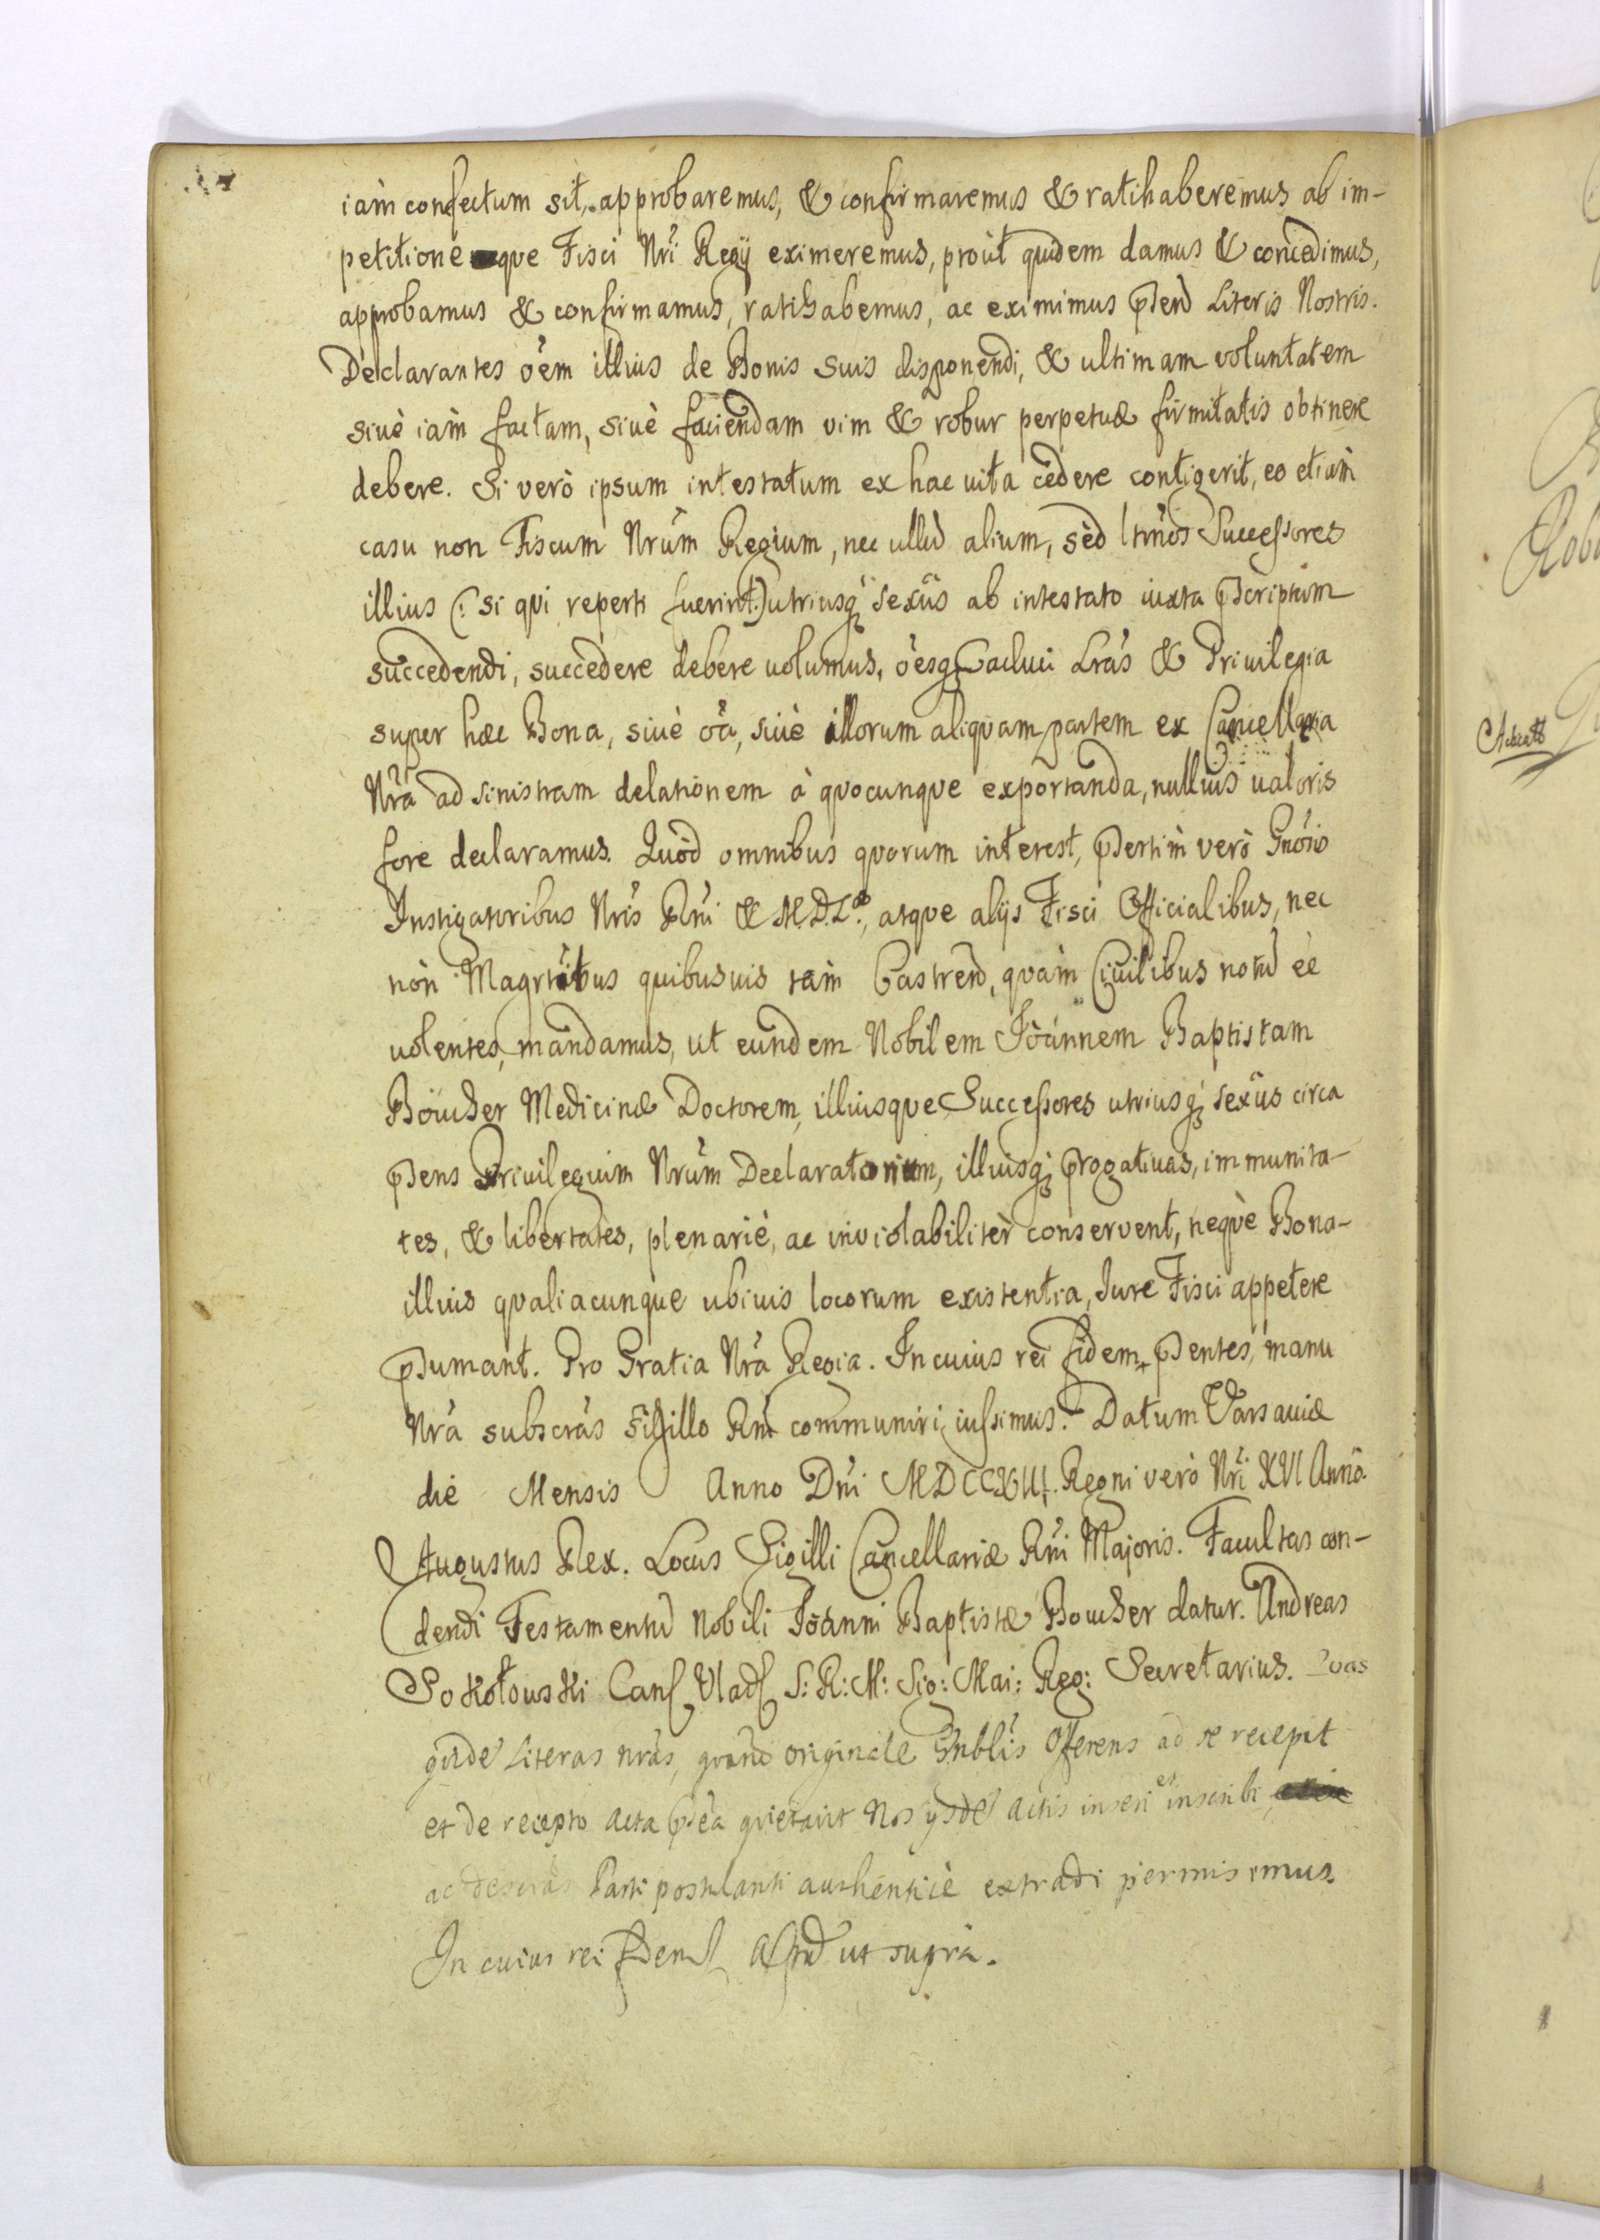 iàm confectum sit, approbaremus, & confirmaremus & ratihaberemus ab im-
petitione que Fisci Nri Regij eximeremus, proùt quidem damus & concedimus,
approbamus & confirmamus, ratihabemus, ac eximimus Literis Nostris.
Declarantes oem illius de Bonis suis disponendi, & ultimam voluntatem
siuè iàm factam, siuè faciendam vim & robur perpetuæ firmitatis obtinere
debere. Si verò ipsum intestatum ex hac uita cedere contigerit, eo etiàm
casu non Fiscum Nrum Regium, nec ullũ alium, sèd ltmos Successores
illius (: si qui reperti fuerint :) utriusq sexûs ab intestato iuxta pscriptum
succedendi, succedere debere uolumus, oesq Caduci Lras & Priuilegia
super hæc Bona, siuè oa, siuè illorum aliquam partem ex Cancellaria
Nra ad sinistram delationem à quocunque exportanda, nullius ualoris
fore declaramus. Quòd omnibus quorum interest, psertim verò Gnosis
Instigatoribus Nris Rni & M.D.L., atque alijs Fisci Officialibus, nec
nòn Magrtibus quibusuis tàm Castren, quàm Ciuilibus notũ ee
uolentes, mandamus, ut eundem Nobilem Ioannem Baptistam
Boucher Medicinæ Doctorem, illiusque Successores utriusq sexûs circa
psens Priuilegium Nrum Declaratorium, illiusq progatiuas, immunita-
tes, & libertates, plenariè, ac inviolabilitèr conservent, neqve Bona-
illius qvaliacunque ubiuis locorum existentia, Iure Fisci appetere
psumant. Pro Gratia Nra Regia. In cuius rei fidem psentes, manu
Nra subscras Sigillo Rni communiri iussimus. Datum Varsauiæ
die Mensis Anno Dni Regni verò Nri XVI Anno.
Augustus Rex. Locus Sigilli Cancellariæ Rni Majoris. Facultas con-
dendi Testamentũ Nobili Ioanni Baptistæ Boucher datur. Andreas
Sokołowski S: R: M: Sig: Mai: Reg: Secretarius. Quas
quide Literas nras, originale Offerens ad se recepit
et de recepto acta psea quietavit Nos ysde actis inseri et inscribi,
ac Parti postulanti authenticè extradi permisimus.
In cuius rei fidem ut supra.